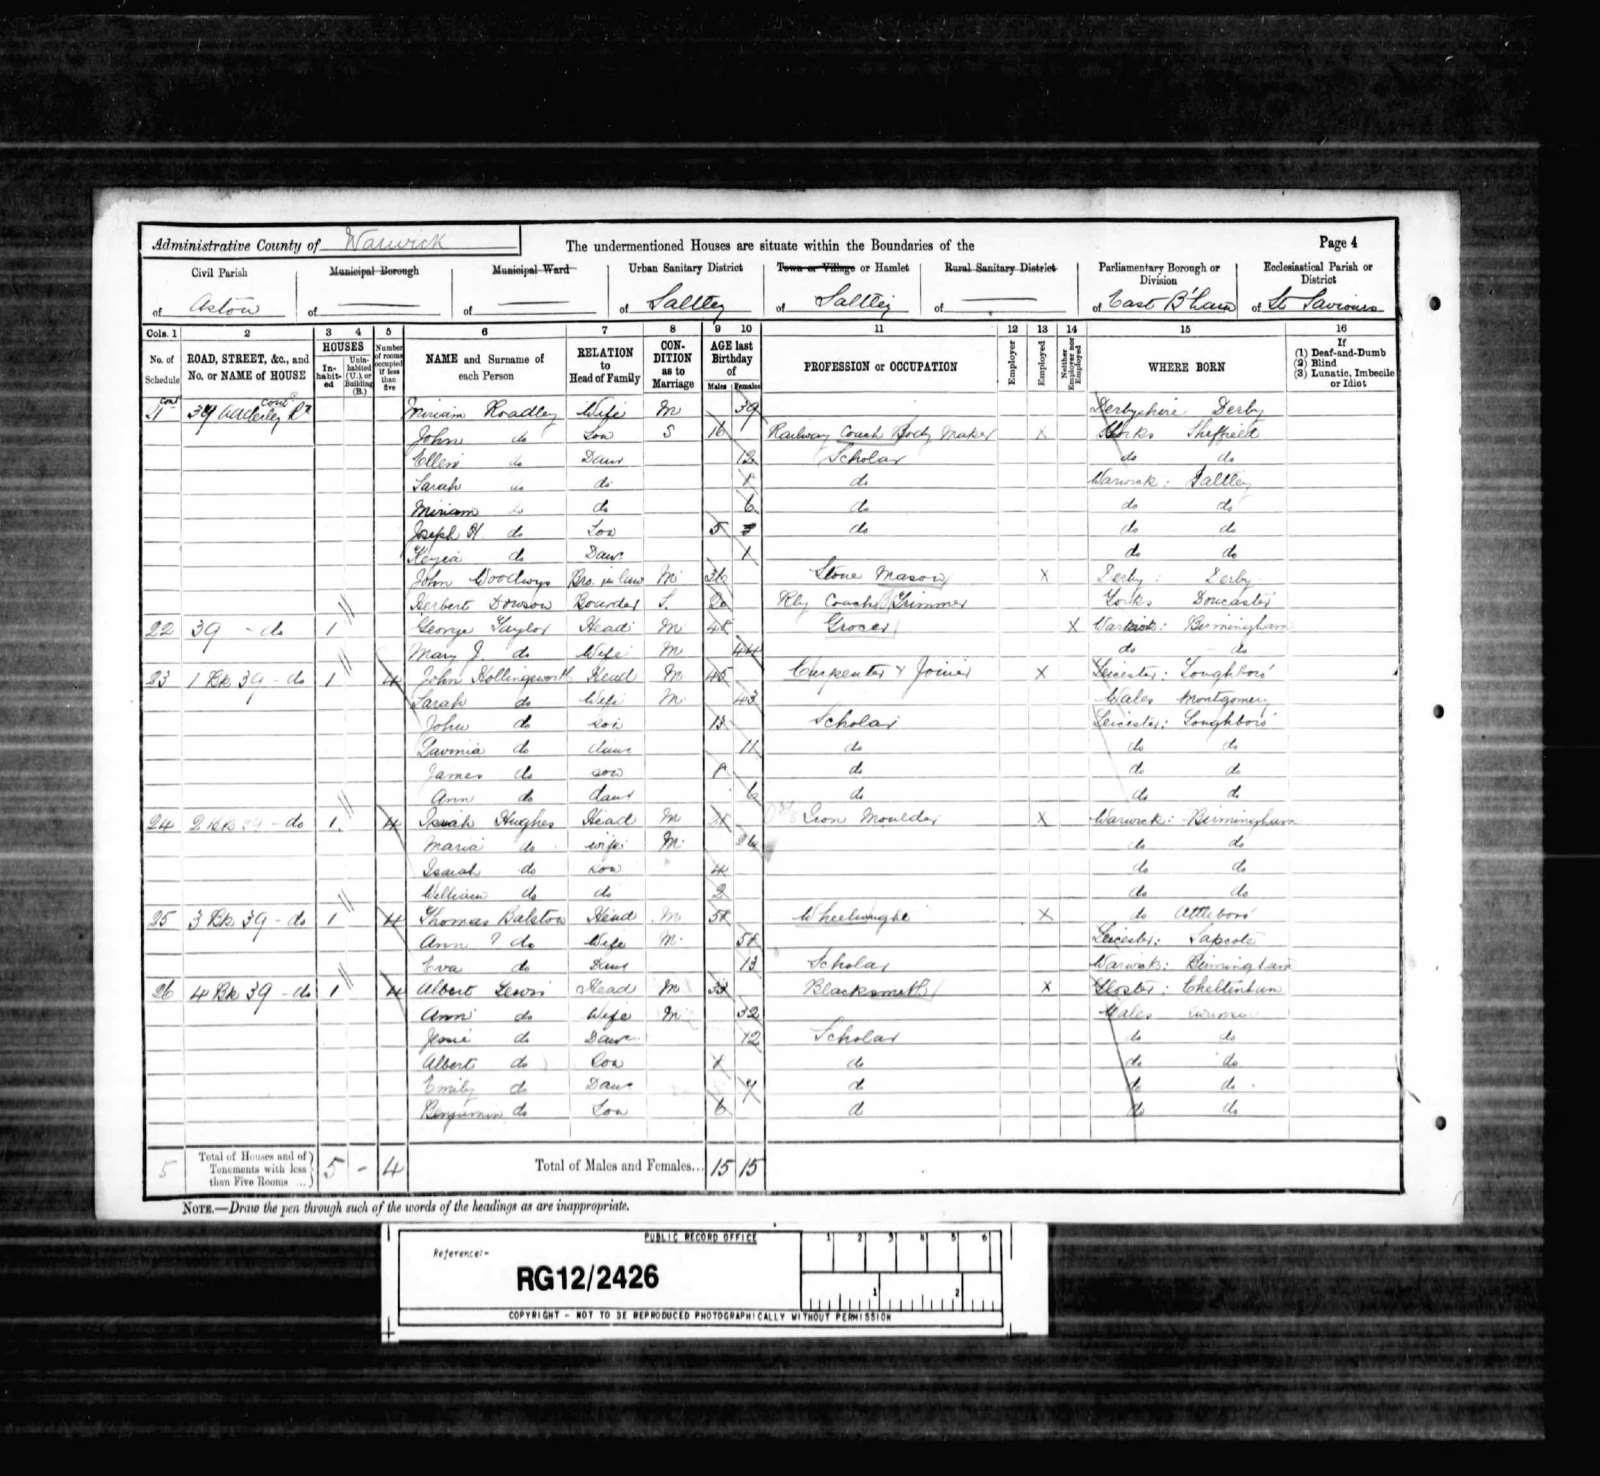 Administrative County of Warwick
The undermentioned Houses are situate within the Boundaries of the
Page 4
Civil Parish of Aston
Municipal Borough of —
Municipal Ward of —
Urban Sanitary District of Saltley
Town or Village or Hamlet of Saltley
Rural Sanitary District of —
Parliamentary Borough or Division of East B'ham
Ecclesiastical Parish or District of St Saviours
Cols. 1 2 3 4 5 6 7 8 9 10 11 12 13 14 15 16
No. of Schedule
ROAD, STREET, &c., and No. or NAME of HOUSE
HOUSES
Inhabited
Uninhabited (U.), or Building (B.)
Number of rooms occupied if less than five
NAME and Surname of each Person
RELATION to Head of Family
CONDITION as to Marriage
AGE last Birthday of
Males Females
PROFESSION or OCCUPATION
Employer
Employed
Neither Employer nor Employed
WHERE BORN
If (1) Deaf-and-Dumb (2) Blind (3) Lunatic, Imbecile or Idiot
cont 39 Adderley Rd cont Miriam Hoadley Wife M 39 Derbyshire Derby
John do Son S 16 Railway Coach Body Maker X Yorks Sheffield
Ellen do Daur 12 Scholar do do
Sarah do do do Warwick: Saltley
Miriam do do 6 do do do
Joseph H do Son 5 do do do
Kezia do Daur 1 do do
John Woodwys Bro. in law M 36 Stone Mason X Derby: Derby
Herbert Dowson Boarder S. 20 Rly Coach Trimmer Yorks Doncaster
22 39 - do 1 George Taylor Head M 48 Grocer X Warwick: Birmingham
Mary J do Wife M 44 do do
23 1 Bk 39 - do 1 4 John Hollingsworth Head M 45 Carpenter & Joiner X Leicester: Loughboro'
Sarah do Wife M 43 Wales Montgomery
John do son 13 Scholar Leicester: Loughboro'
Lavinia do daur 11 do do do
James do son 8 do do do
Ann do daur 6 do do do
24 2 Bk 39 - do 1 4 Isaiah Hughes Head M Iron Moulder X Warwick: Birmingham
Maria do wife M 26 do do
Isaiah do son 4 do do
William do do 2 do do
25 3 Bk 39 - do 1 4 Thomas Balston Head M Wheelwright X do Attleboro'
Ann ? do Wife M Leicester: Sapcote
Eva do Daur 13 Scholar Warwick: Birmingham
26 4 Bk 39 - do 1 4 Albert Lewis Head M 33 Blacksmith X Gloster: Cheltenham
Ann do Wife M 32 Wales
do Daur 12 Scholar do do
Albert do Son do do do
Emily do Daur 7 do do do
Benjamin do Son 6 do do do
5 Total of Houses and of Tenements with less than Five Rooms ... 5 - 4 Total of Males and Females... 15 15
NOTE.—Draw the pen through such of the words of the headings as are inappropriate.
PUBLIC RECORD OFFICE
1 2 3 4 5 6
Reference:-
RG12/2426
1 2
COPYRIGHT - NOT TO BE REPRODUCED PHOTOGRAPHICALLY WITHOUT PERMISSION